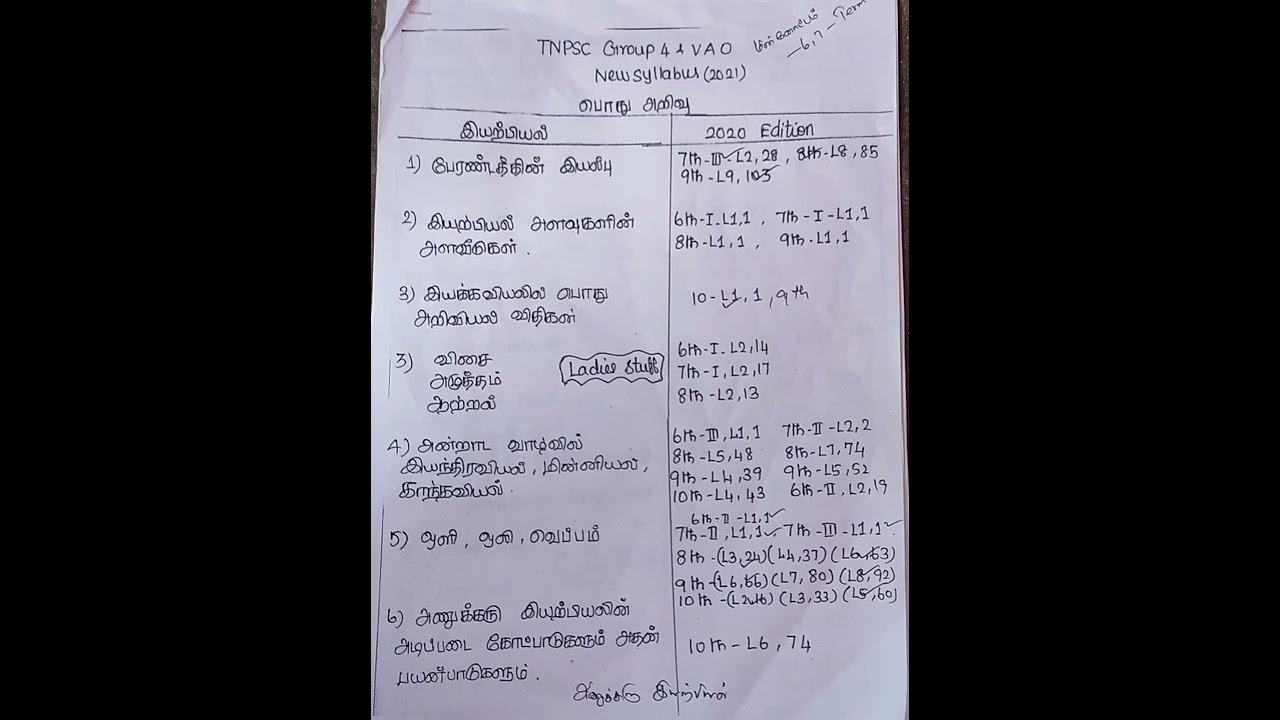 மின்னோட்டம்
6,7 - Term
TNPSC Group 4 & VAO
New syllabus (2021)
பொது அறிவு
இயற்பியல்
2020 Edition
1) பேரண்டத்தின் இயல்பு
7th-III-L2,28, 8th-L8,85
9th-L9,103
2) இயற்பியல் அளவுகளின்
அளவீடுகள்.
6th-I-L1,1, 7th-I-L1,1
8th-L1,1, 9th-L1,1
3) இயக்கவியலில் பொது
அறிவியல் விதிகள்
10-L1,1,9th
3) விசை
அழுத்தம்
ஆற்றல்
Ladies Stuff
6th-I-L2,14
7th-I,L2,17
8th-L2,13
4) அன்றாட வாழ்வில்
இயந்திரவியல், மின்னியல்,
காந்தவியல்.
6th-III,L1,1 7th-II-L2,2
8th-L5,48 8th-L7,74
9th-L4,39 9th-L5,52
10th-L4,43 6th-II,L2,19
5) ஒளி, ஒலி, வெப்பம்
6th-II-L1,1
7th-II,L1,1, 7th-III-L1,1
8th-(L3,24)(L4,37)(L6,63)
9th-(L6,66)(L7,80)(L8,92)
10th-(L2,16)(L3,33)(L5,60)
6) அணுக்கரு இயற்பியலின்
அடிப்படை கோட்பாடுகளும் அதன்
பயன்பாடுகளும்.
10th-L6,74
அணுக்கரு இயற்பியல்